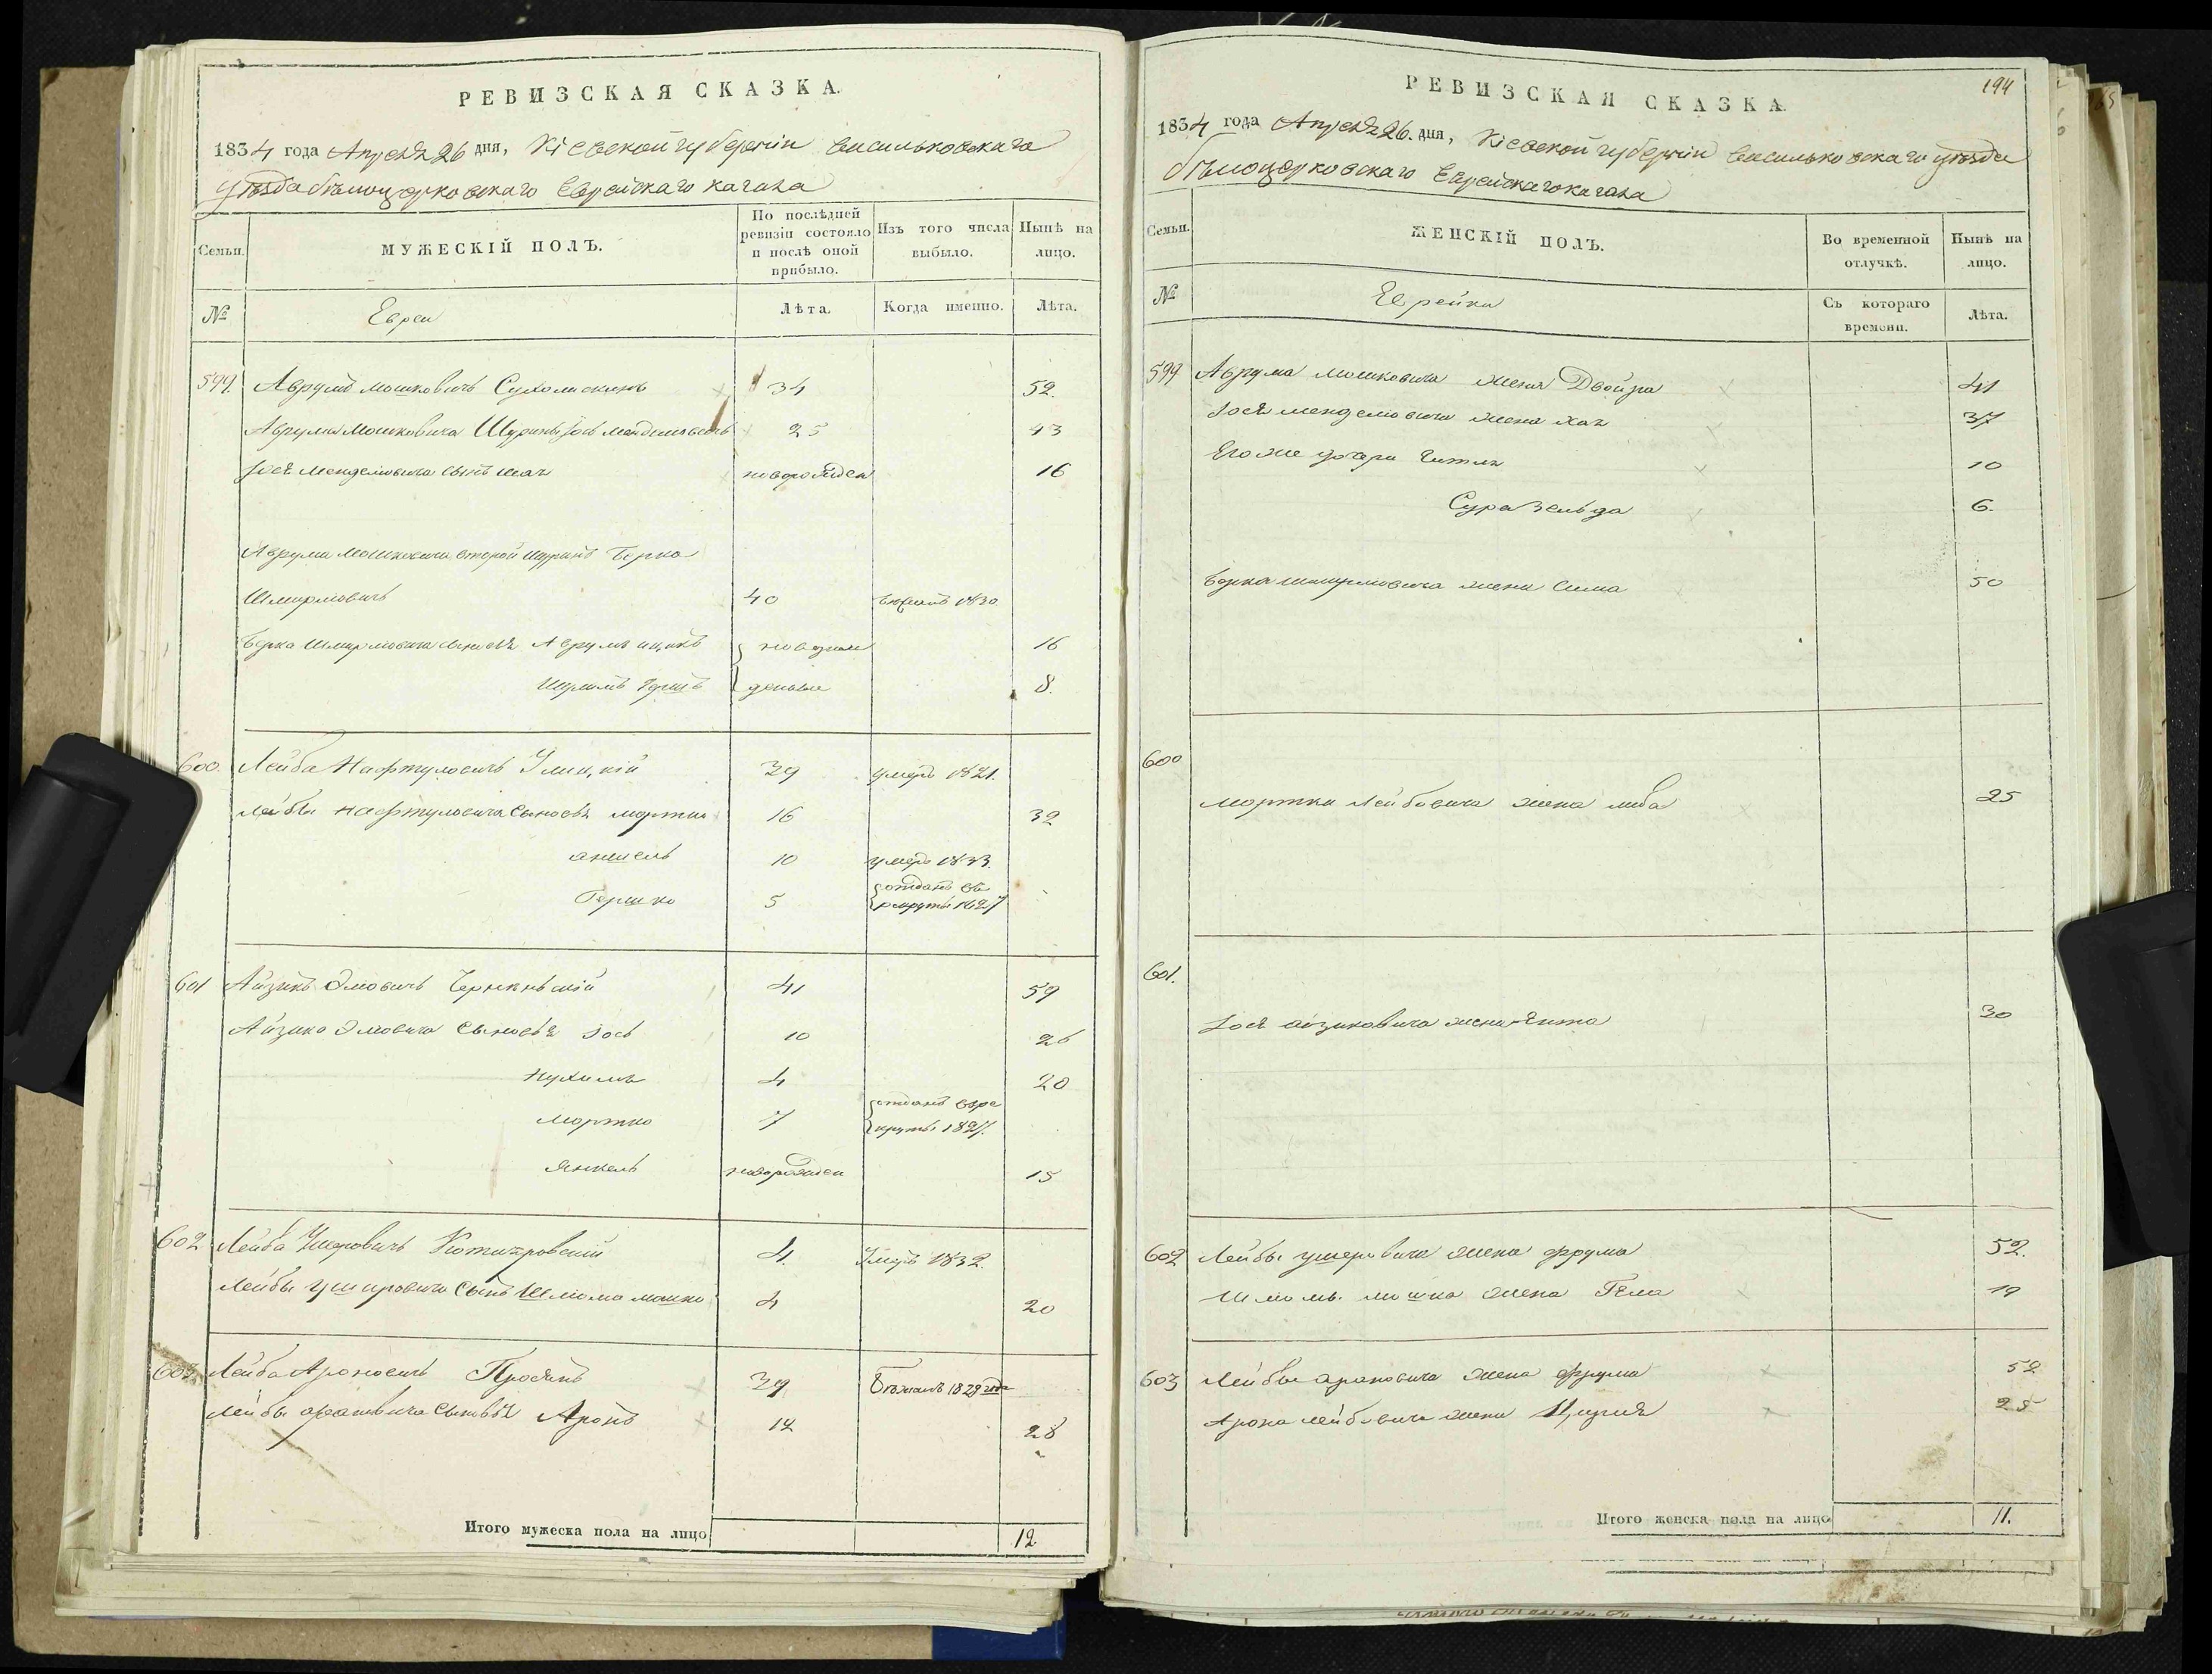 РЕВИЗСКАЯ СКАЗКА.
1834 года Апреля 26 дня, Кіевской губерніи Васильковскаго
уѣзда бѣлоцерковскаго Еврейскаго кагала
Семьи.
МУЖЕСКІЙ ПОЛЪ.
По послѣдней ревизіи состояло и послѣ оной прибыло.
Изъ того числа выбыло.
Нынѣ на лицо.
№
Евреи
Лѣта.
Когда именно.
Лѣта.
599. Аврумъ Мошковичъ 34 52.
Аврума Мошковича Шуринъ Іось Менделіовичъ 25 43
Іося Менделіовича сынъ новорожден 16
Аврума Мошковича второй шуринъ Берко
Шмулiовичъ 40 1830
Берка Шмулiовича сыновья Аврумъ Ицикъ новорож 16
Шулимъ Гершъ денные 8.
600. Лейба Нафтуловичъ Улицкій 39 умеръ 1821.
Лейбы Нафтуловича сыновья мортко 16 32
аншель 10 умеръ 1833.
Гершко 5 отданъ въ рекруты 1827
601 Айзикъ Эліовичъ 41 59
Айзика Эліовича сыновья Іось 10 26
Нухимъ 4 20
мортко 7 отданъ въ рекруты 1827.
Янкель новорожден 15
602 Лейба Ушеровичъ 4. Умеръ 1832.
Лейбы Ушеровича сынъ Шліома мошко 4 20
603 Лейба Ароновичъ Просянъ 39 Бѣжалъ 1829 года
Лейбы ароновича сыновья Аронъ 12 28
Итого мужеска пола на лицо 12.
194
РЕВИЗСКАЯ СКАЗКА.
1834 года Апреля 26. дня, Кіевской губерніи Васильковскаго уѣзда
бѣлоцерковскаго Еврейскаго кагала
Семьи.
ЖЕНСКІЙ ПОЛЪ.
Во временной отлучкѣ.
Нынѣ на лицо.
№
Еврейки
Съ котораго времени.
Лѣта.
599 Аврума Мошковича жена Двойра 41
Іося менделіовича жена хая 37
Его же дочери Гитля 10
Сура Зельда 6.
Берка шмулiовича жена Сима 50
600
мортки Лейбовича жена либа 25
601.
Іося айзиковича жена 30
602 Лейбы ушеровича жена фрума 52.
Шліомы мошка жена Гела 19
603 Лейбы ароновича жена фрума 52
Арона лейбовича жена Ципря 25
Итого женска пола на лицо 11.